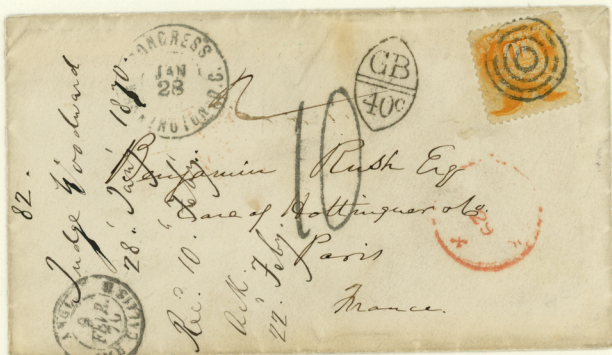 CONGRESS
JAN
28
WASHINGTON D.C.
GB
40c
10
Benjamin Rush Esq
Care of Hottinguer & Co
Paris
France.
82.
Judge Woodward
28 " Jan'y 1870.
Rec. 10 " Feby.
Ack.
22 " Feby.
ANGL.
9
FEVR.
70
CALAIS